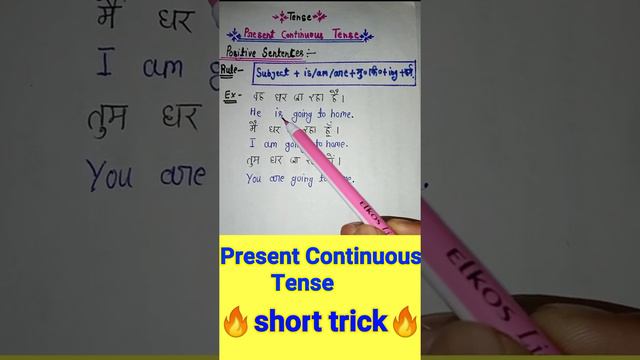 Tense
Present Continuous Tense
Positive Sentences:-
Rule- Subject + is/am/are + मु० क्रि० + ing + कर्म
Ex:- वह घर जा रहा है।
He is going to home.
मैं घर रहा हूँ।
I am going to home.
तुम घर जा
You are going to
Present Continuous
Tense
🔥 short trick 🔥
मैं घर
I am
तुम घर
You are
Elkos Li